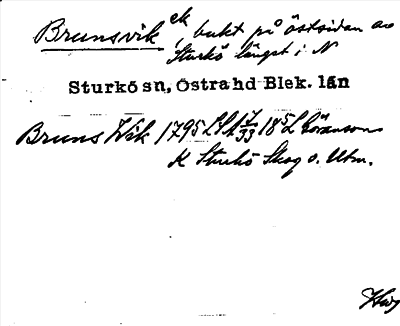 Brunsvik ek, bukt på östsidan av
Sturkö längst i N
Sturkö sn, Östra hd Blek. län
Bruns Wik 1795 LSA 17/33 1852 Göransson
K Sturkö Skog o. Utm.